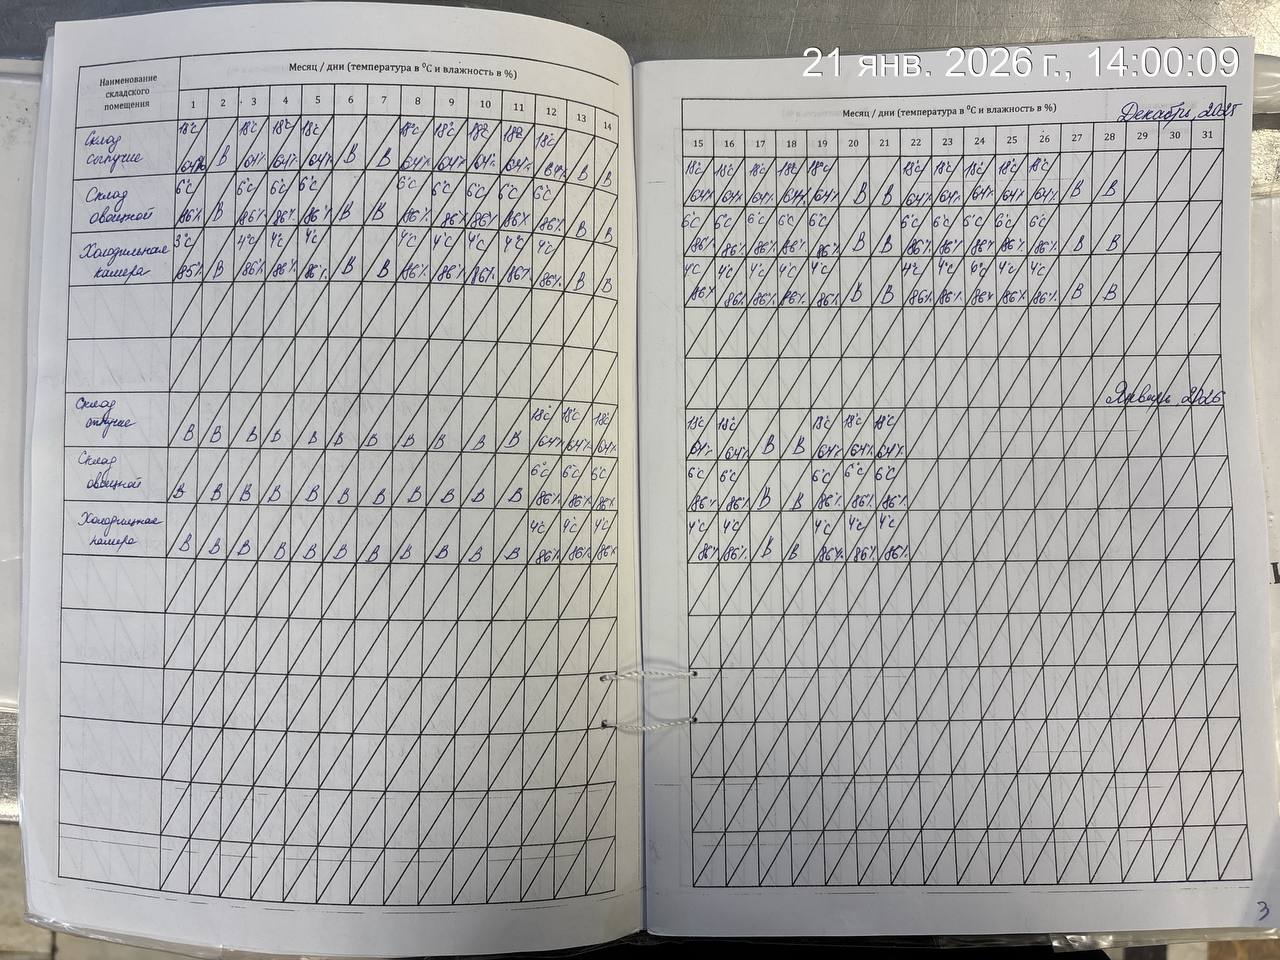 21 янв. 2026 г., 14:00:09
Наименование складского помещения
Месяц / дни (температура в °С и влажность в %)
1 2 3 4 5 6 7 8 9 10 11 12 13 14
Склад сыпучие
18°С 18°С 18°С 18°С 18°С 18°С 18°С 18°С 18°С
64% В 64% 64% 64% В В 64% 64% 64% 64% 64% В В
Склад овощной
6°С 6°С 6°С 6°С 6°С 6°С 6°С 6°С 6°С
86% В 86% 86% 86% В В 86% 86% 86% 86% 86% В В
Холодильная камера
3°С 4°С 4°С 4°С 4°С 4°С 4°С 4°С 4°С
85% В 86% 86% 86% В В 86% 86% 86% 86% 86% В В
Склад
18°С 18°С 18°С
В В В В В В В В В В В 64% 64% 64%
Склад овощной
6°С 6°С 6°С
В В В В В В В В В В В 86% 86% 86%
Холодильная камера
4°С 4°С 4°С
В В В В В В В В В В В 86% 86% 86%
Месяц / дни (температура в °С и влажность в %)
Декабрь 2025
15 16 17 18 19 20 21 22 23 24 25 26 27 28 29 30 31
18°С 18°С 18°С 18°С 18°С 18°С 18°С 18°С 18°С 18°С
64% 64% 64% 64% 64% В В 64% 64% 64% 64% 64% В В
6°С 6°С 6°С 6°С 6°С 6°С 6°С 6°С 6°С 6°С
86% 86% 86% 86% 86% В В 86% 86% 86% 86% 86% В В
4°С 4°С 4°С 4°С 4°С 4°С 4°С 4°С 4°С
86% 86% 86% 86% 86% В В 86% 86% 86% 86% 86% В В
Январь
18°С 18°С 18°С 18°С 18°С
64% 64% В В 64% 64% 64%
6°С 6°С 6°С 6°С 6°С
86% 86% В В 86% 86% 86%
4°С 4°С 4°С 4°С 4°С
86% 86% В В 86% 86% 86%
3